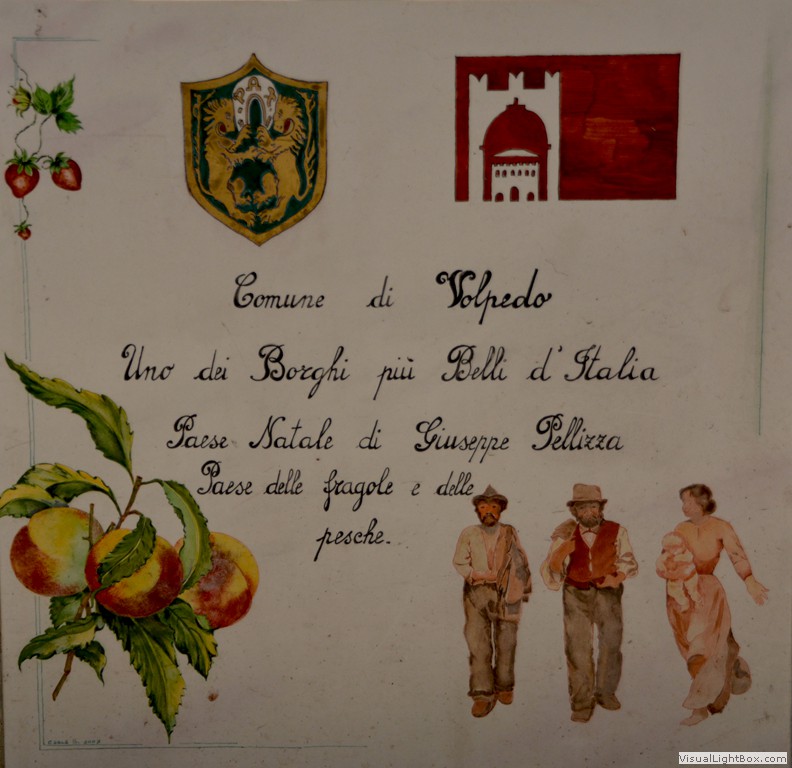 PAX
Comune di Volpedo
Uno dei Borghi più Belli d'Italia
Paese Natale di Giuseppe Pellizza
Paese delle fragole e delle
pesche.
VisualLightBox.com